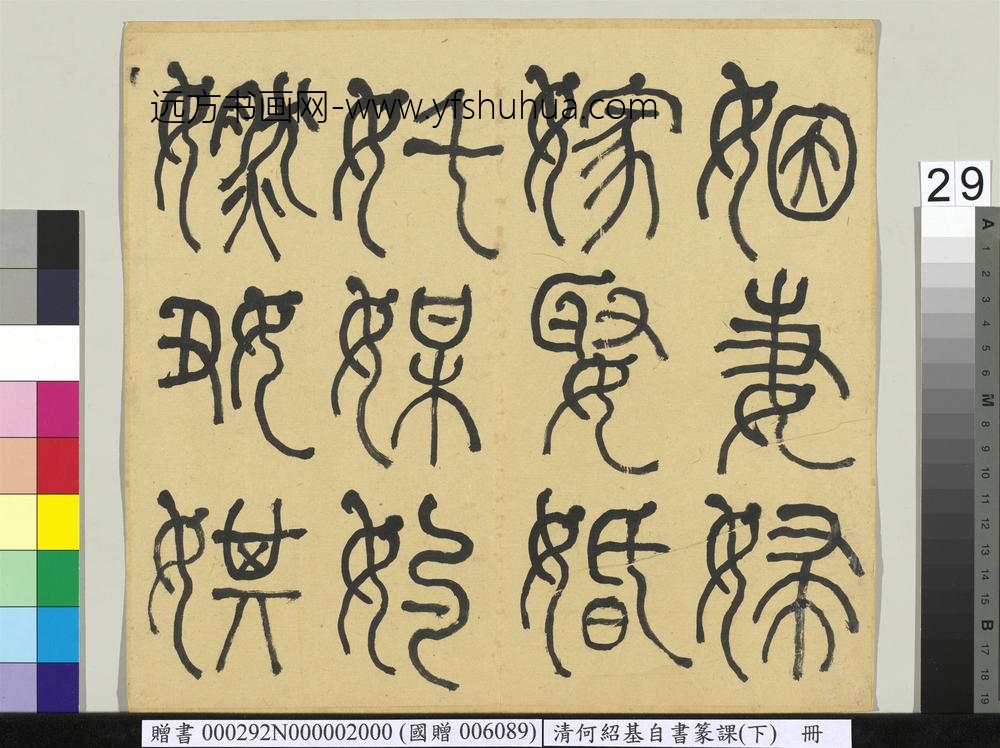 远方书画网-www.yfshuhua.com
娸
奼媒妁
嫁娶婚
姻妻婦
29
A
1
2
3
4
5
6
M
8
9
10
11
12
13
14
15
B
17
18
19
贈書 000292N000002000 (國贈 006089) 清何紹基自書篆課(下) 冊